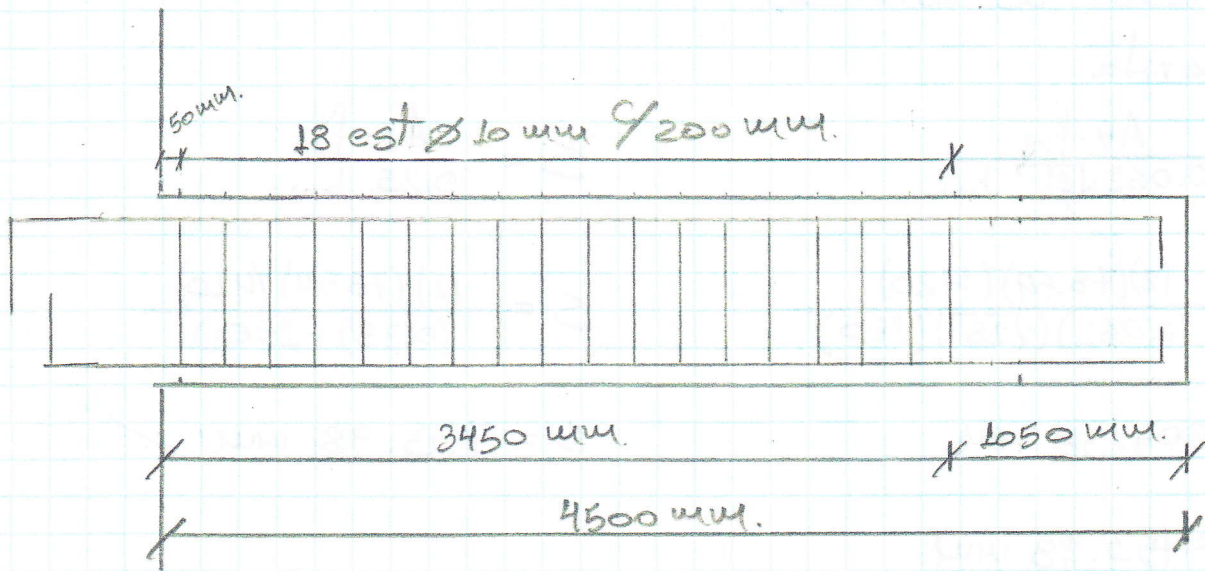 50 mm.
18 est Ø 10 mm c/200 mm.
3450 mm.
1050 mm.
4500 mm.